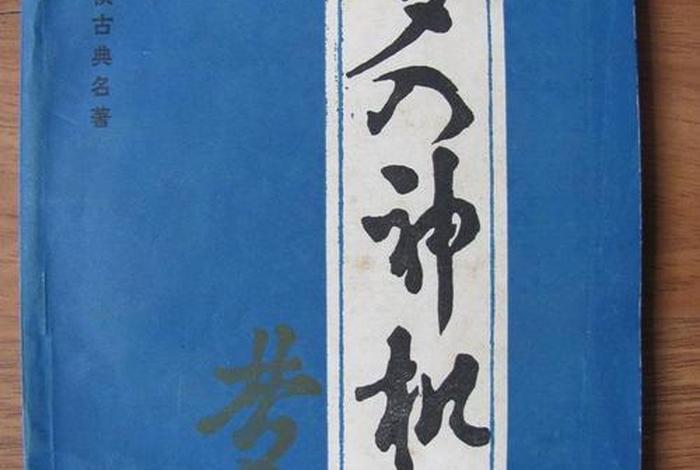 古典名著
入神机